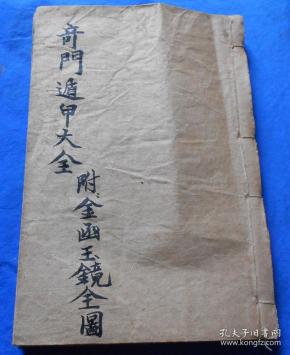 奇門遁甲大全
附:金函玉鏡全圖
孔夫子旧书网